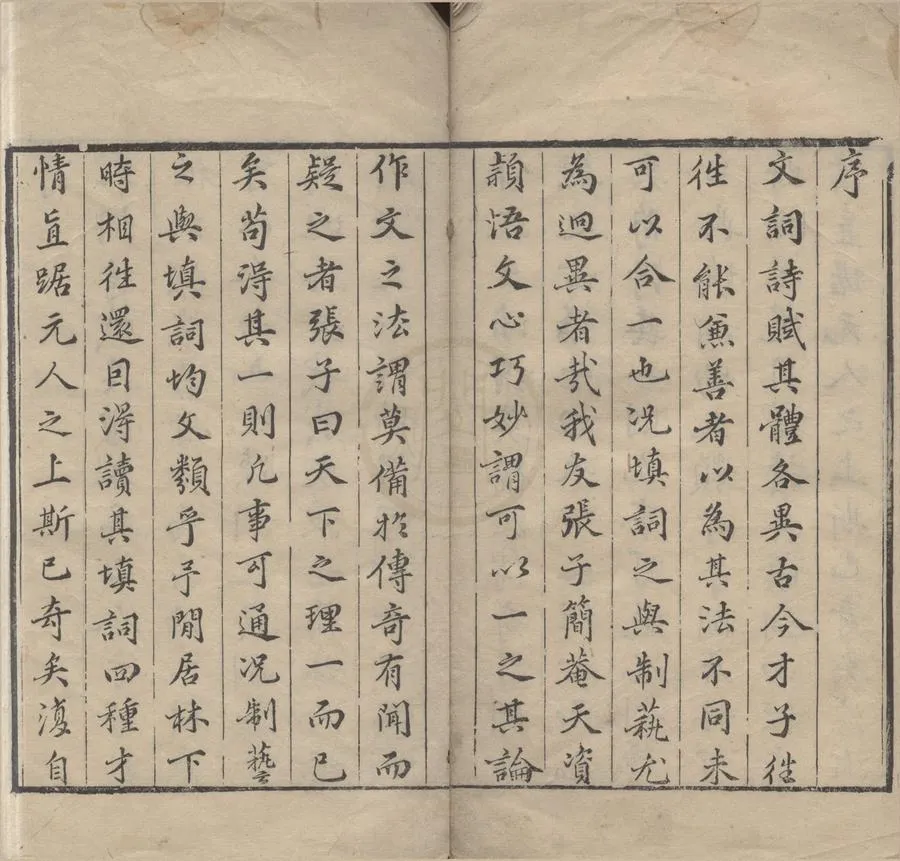 序
文詞詩賦其體各異古今才子徃
徃不能兼善者以為其法不同未
可以合一也况填詞之與制蓺尤
為迥異者哉我友張子簡菴天資
頴悟文心巧妙謂可以一之其論
作文之法謂莫備於傳奇有聞而
疑之者張子曰天下之理一而已
矣苟淂其一則凢事可通况制藝
之與填詞均文類乎予閒居林下
時相徃還因淂讀其填詞四種才
情直踞元人之上斯已奇矣復自